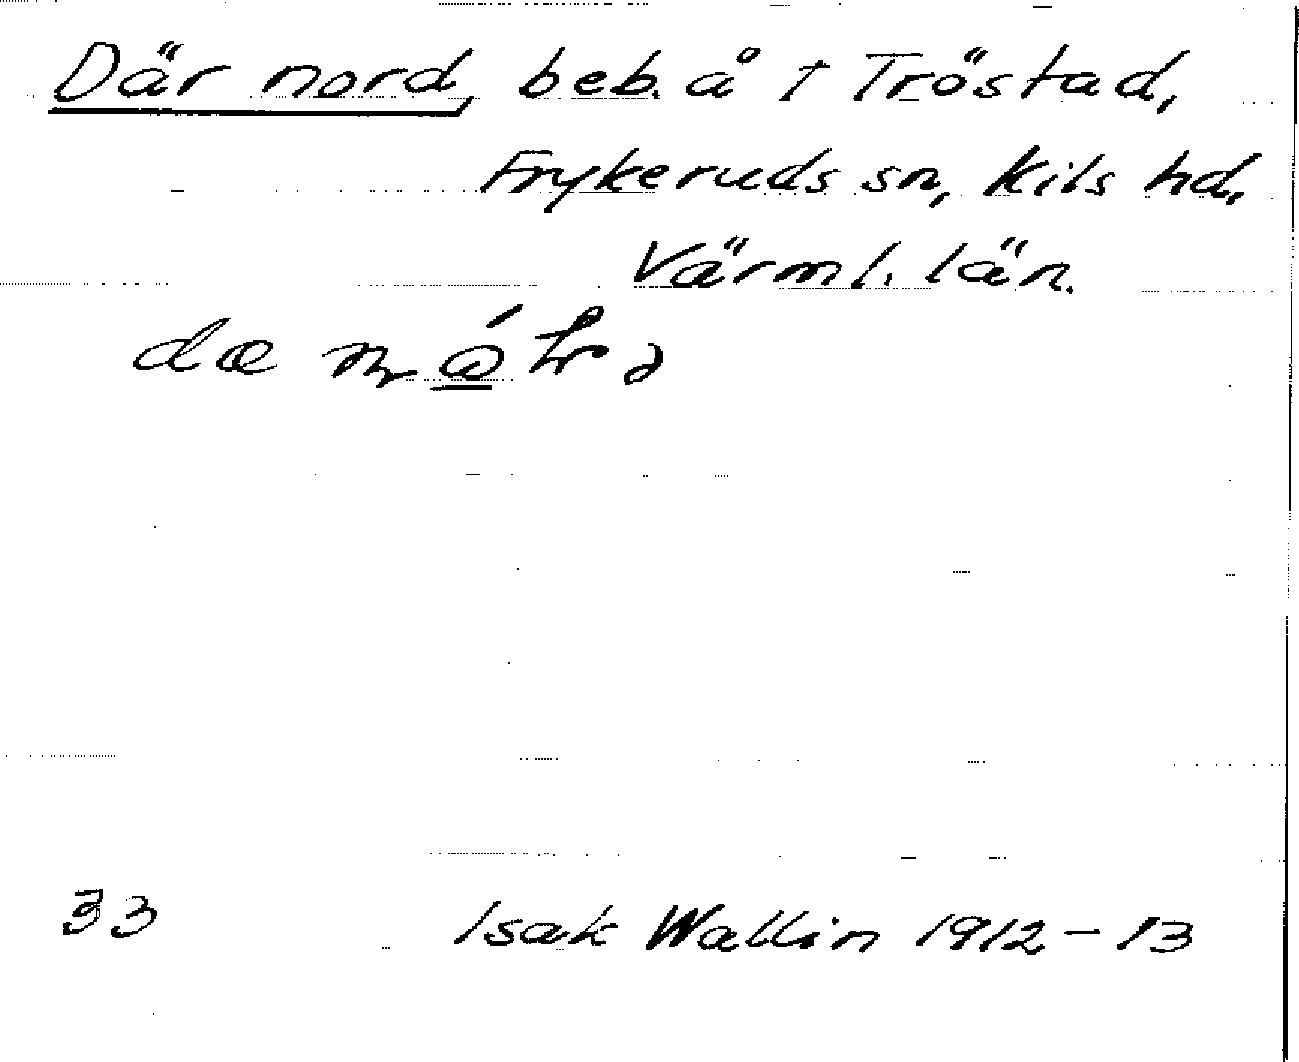 Där nord, beb. å † Tröstad,
Frykeruds sn, Kils hd,
Värml. län.
dæ
33 Isak Wallin 1912-13